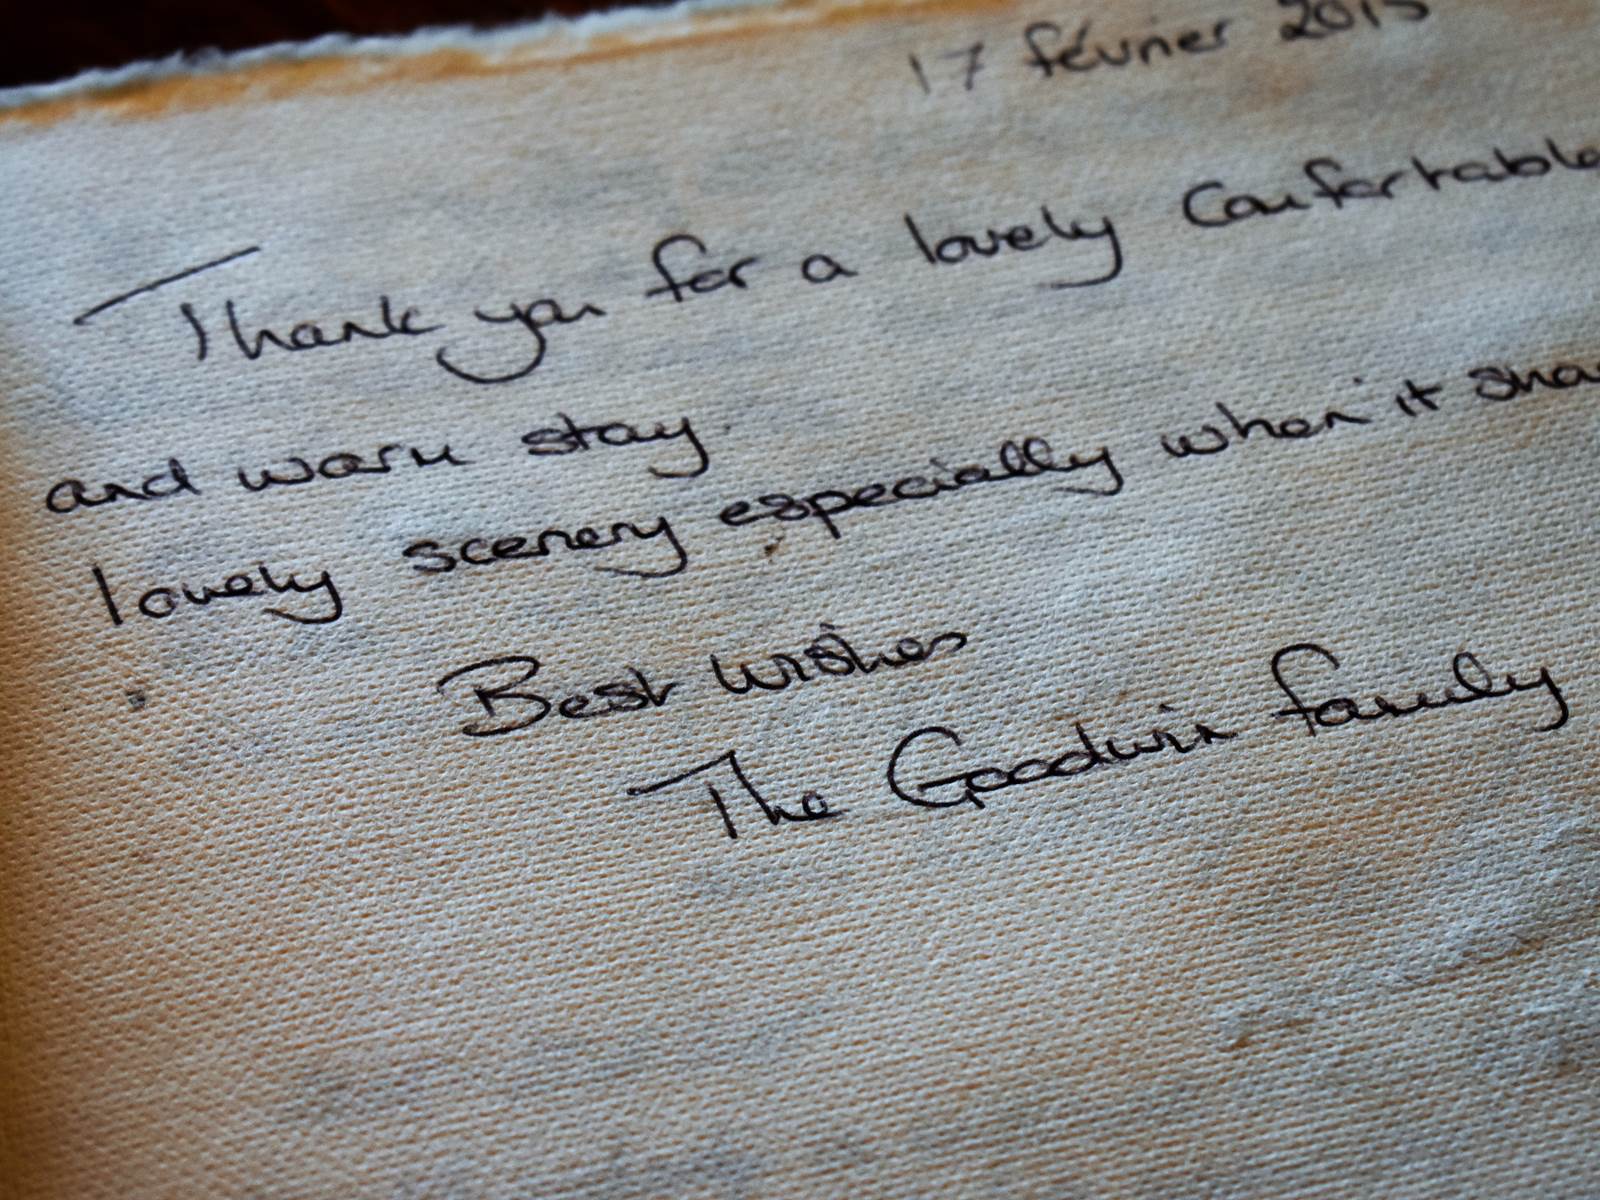 17 février 2015
Thank you for a lovely Confortable
and warm stay.
lovely scenery especially when it
Best wishes
The Goodwin family